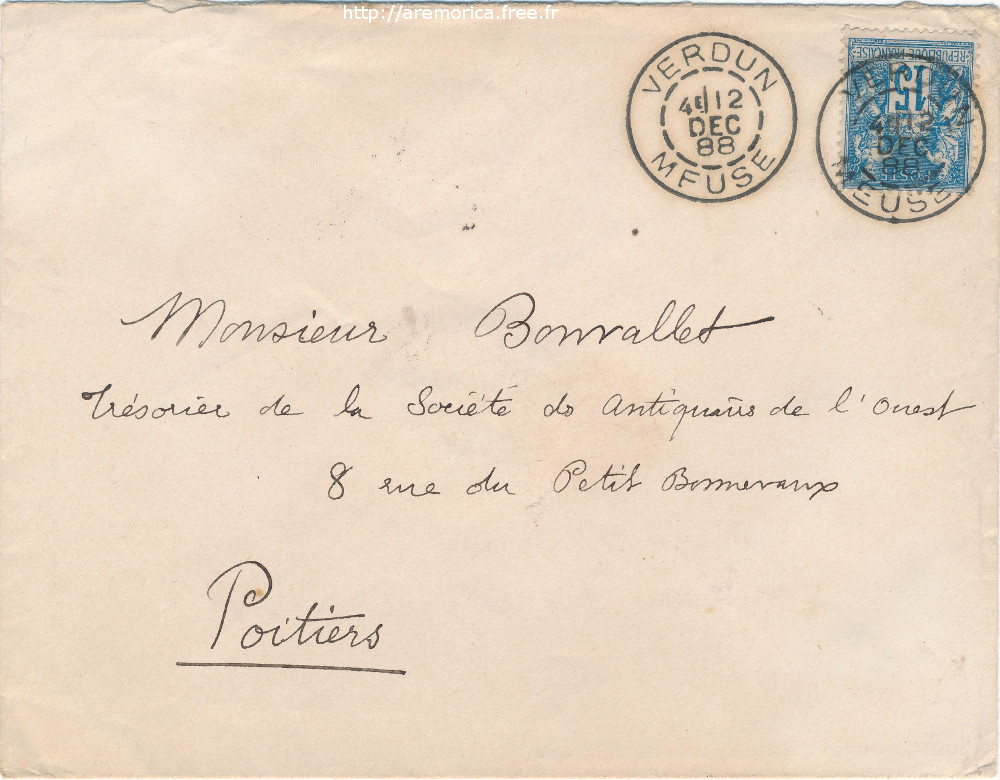 http://aremorica.free.fr
VERDUN
4E 12
DEC
88
MEUSE
REPUBLIQUE FRANCAISE
15
VERDUN
4E 12
DEC
88
MEUSE
Monsieur Bonvallet
Trésorier de la Société des Antiquaires de l'Ouest
8 rue du Petit Bonnevaux
Poitiers